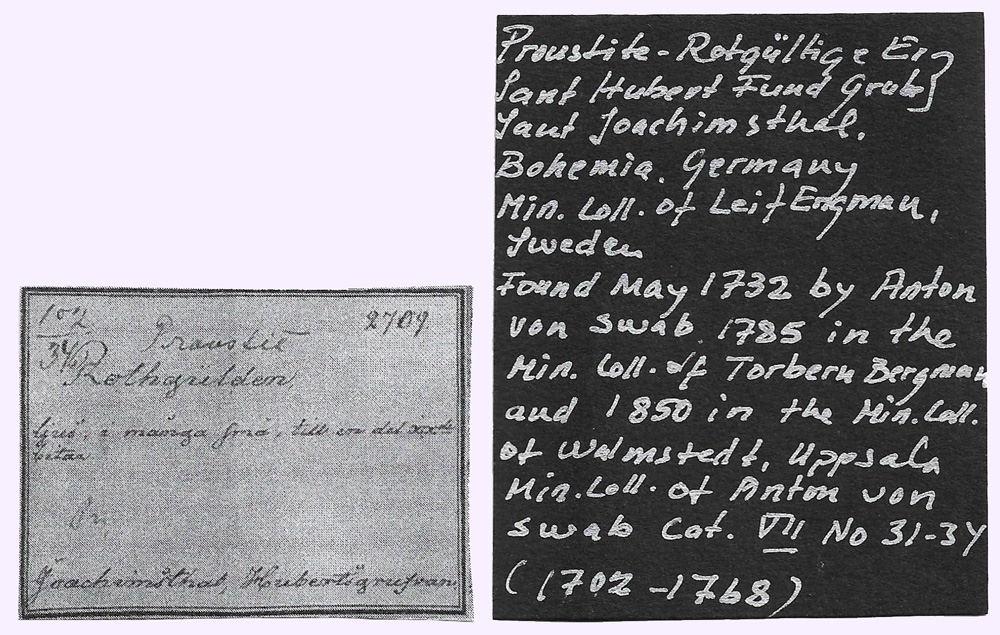 102
34
2709
Proustit
Rothgülden,
ljus, i många små, till en del
bitar.
Joachimsthal, Hubertsgrufvan.
Proustite - Rotgültige Erz
Sant Hubert Fund Grube
Sant Joachimsthal.
Bohemia. Germany
Min. Coll. of Leif Engman,
Sweden
Found May 1732 by Anton
von Swab. 1785 in the
Min. Coll. of Torbern Bergman
and 1850 in the Min. Coll.
of Walmstedt, Uppsala
Min. Coll. of Anton von
Swab Cat. VII No 31-34
(1702 - 1768)